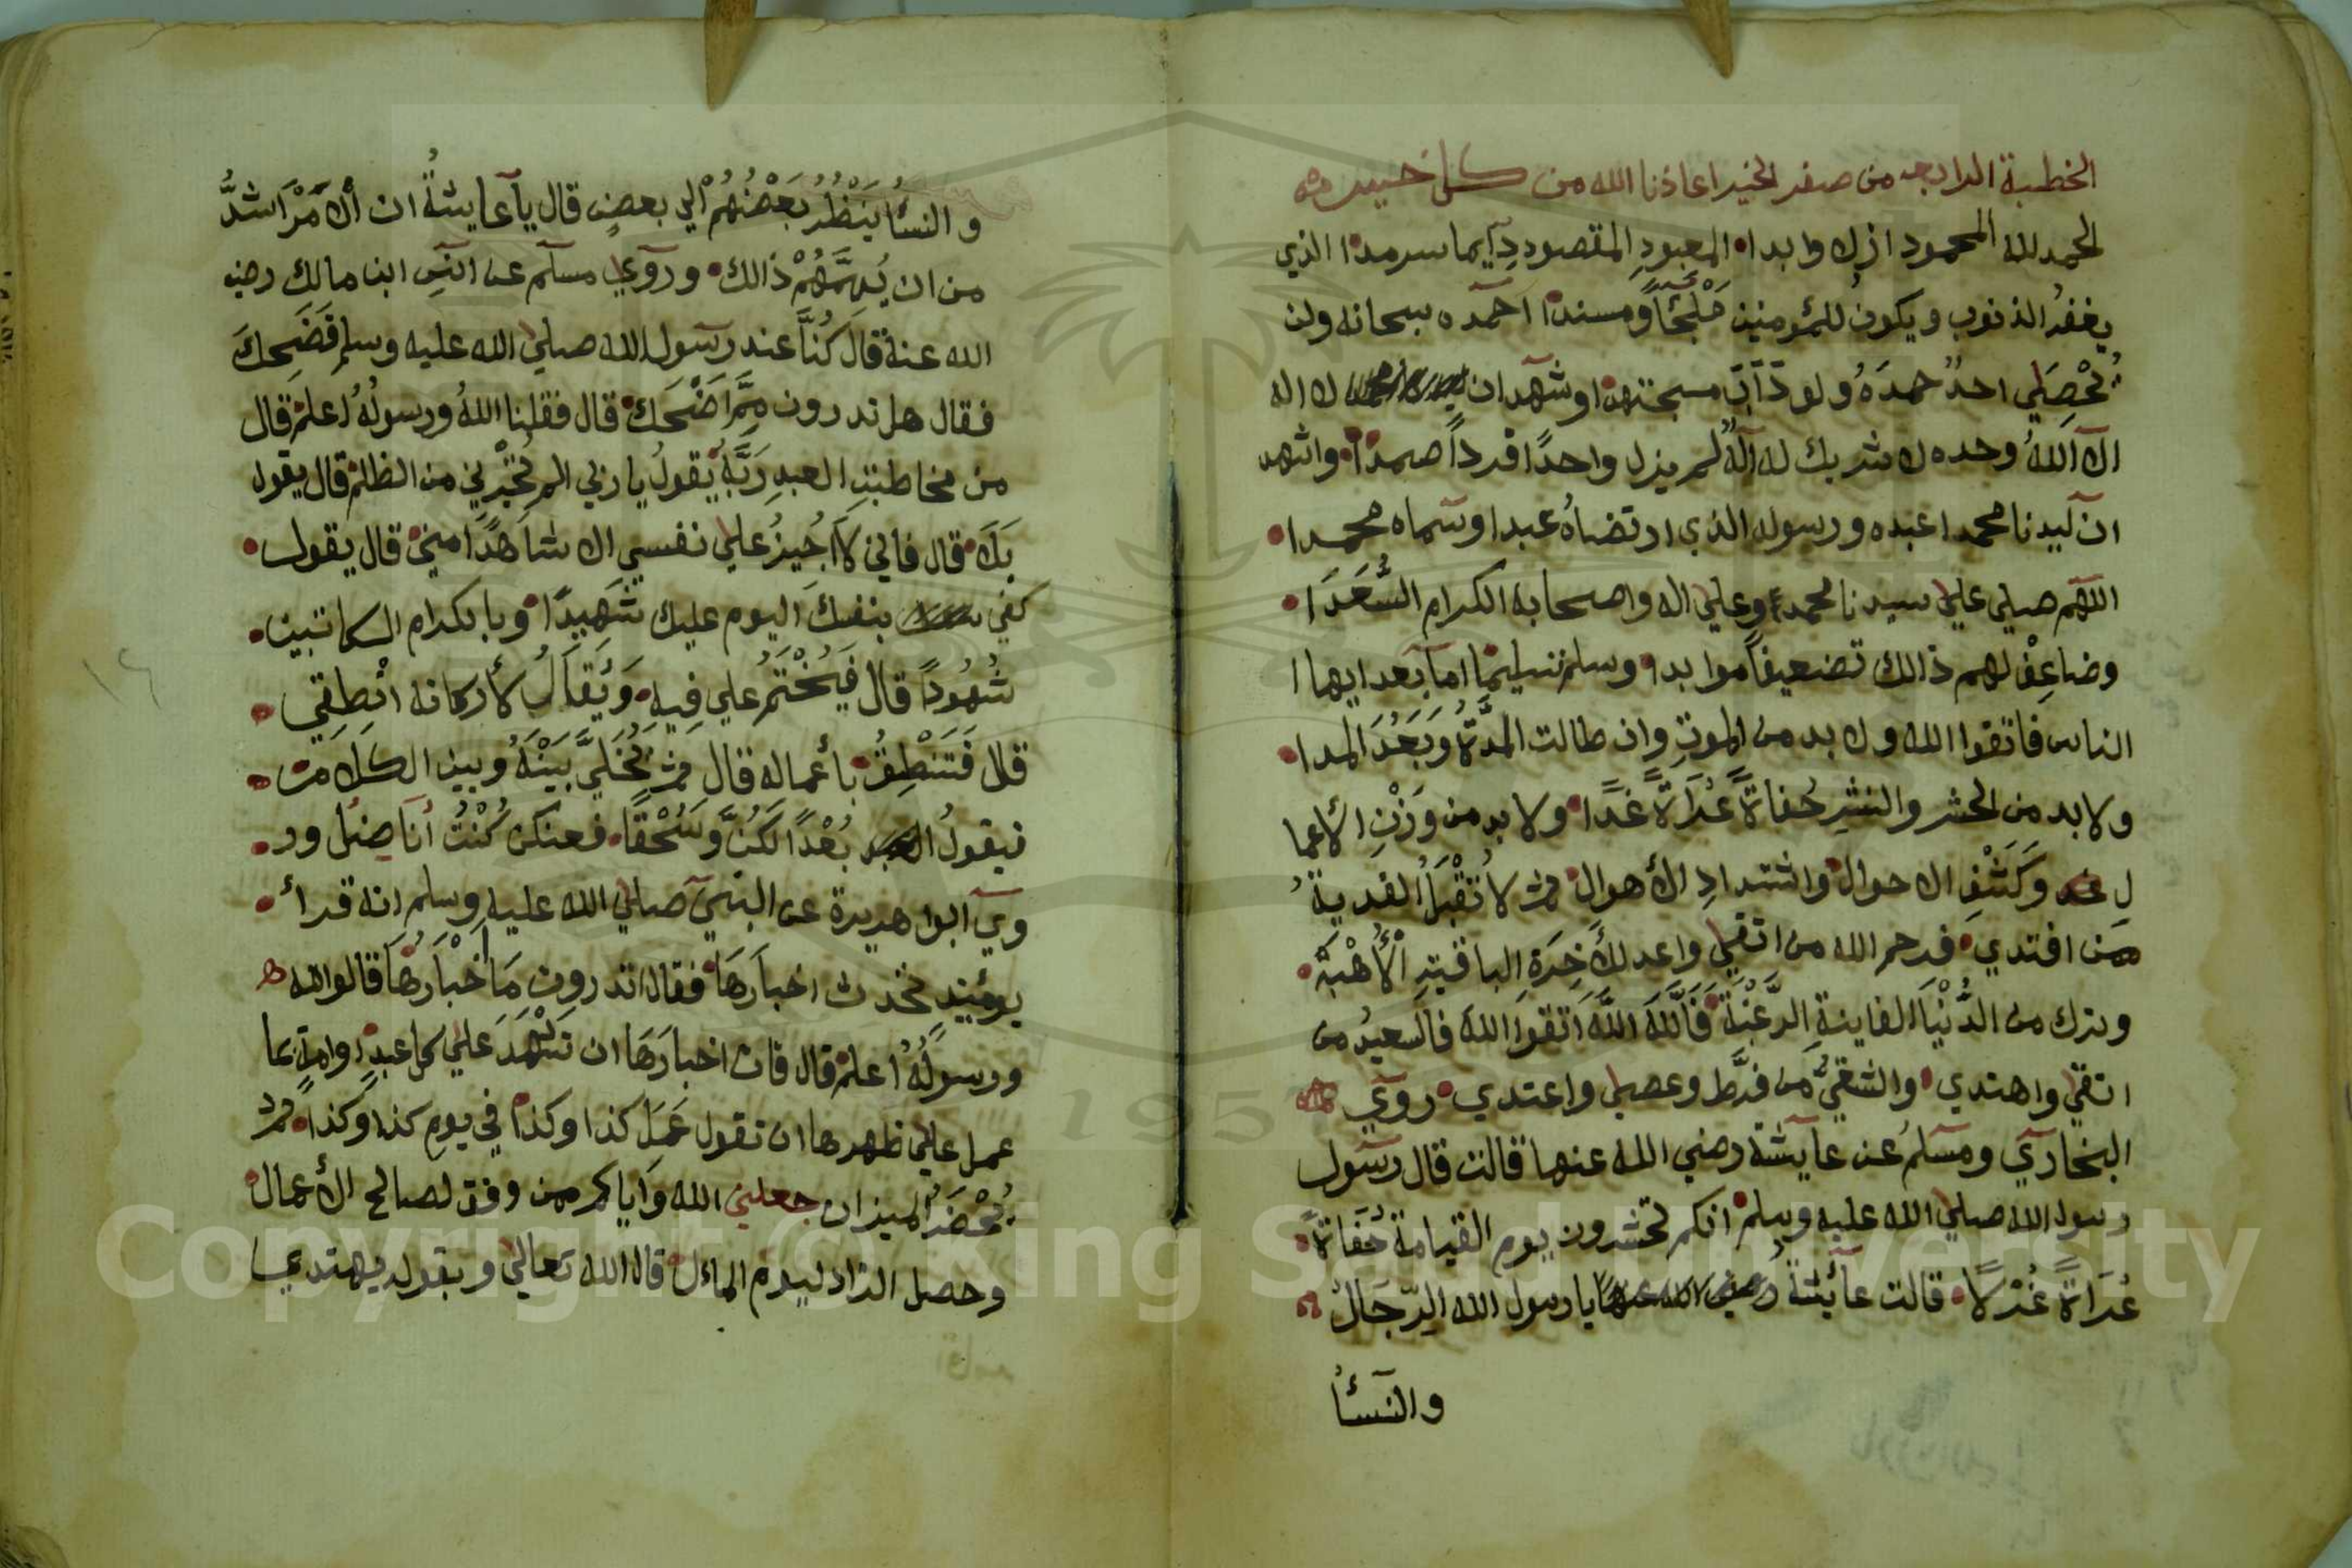 الخطبة الرابعه من صفر الخير اعاذنا الله من كل
الحمد لله المحمود ازلا وابدا المعبودِ المقصود دآيما سرمدا الذي
يغفرُ الذنوب ويكونُ للمؤمنين مَلْجَئًا ومسندا احمده سبحانه ولن
يُحْصِلَي احدٌ حمدَهُ ولو دَآبَ مسجتهدا وشهد ان لا اله
الا اللهُ وحده لا شريك له آلهٌ لم يزل واحدًا فرداً صمدًا واشهد
ان سيدنا محمدا عبده ورسوله الذي ارتضاهُ عبدا وسماه محمدا
اللهم صلي علي سيدنا محمد وعلي اله واصحابه الكرام السُّعَدَا
وضاعِفْ لهم ذالك تضعيفاً موابدا وسلم تسليمًا اما بعد ايها ا
الناس فاتقوا الله ولا بد من الموتِ وان طالت المدَّةُ وبَعُدَ المدا
ولا بد من الحشر والنشرِ حُفاةً عُرَاةً غدًا ولا بد من وَزْنِ الأعما
لِ وَكَشْفِ الاحوال واشتدادِ الأهوال ثم لا تُقْبَلُ الفديةُ
ممن افتدي فرحم الله من اتقي واعد للأَخِرَةِ الباقيتِ الْأُهْبَةَ
وترك من الدُّنْيَا الفاينةِ الرَّغْبَةَ فَاللَّهَ اللَّهَ اتقوا اللهَ فالسعيدُ من
اتقي واهتدي والشقيُّ من فرَّط وعصي واعتدي روي
البخاري ومسلمُ عن عآيشة رضي الله عنها قالت قال رسول
رسول الله صلي الله عليه وسلم انكم تحشرون يوم القيامة حُفَاةً
عُرَاةً غُرْلًا قالت عآئيشةُ رضي الله عنها يا رسول الله الرّجَالُ
والنسأ
والنسأُ يَنْظُرُ بَعْضُهُمْ الي بعضٍ قال يآ عايشةُ ان الأَمْرَ اشدُّ
من ان يُهِمَّهُمْ ذالك ورَوَي مسلم عن انسِ ابن مالكِ رضي
الله عنهُ قالَ كُنَّا عند رسول الله صلي الله عليه وسلم فَضَحِكَ
فقال هل تدرون مِمَّا ضْحَك قال فقلنا اللهُ ورسولُهُ اعلم قال
من مخاطبتِ العبدِ رَبَّهُ يَقولُ يا ربي الم تُجْرِني من الظلم قال يقول
بَلَا قال فاني لاَ اُجِيزُ علي نفسي الا شاهدًا مني قال يقول
كفي بنفسك اليوم عليك شَهِيدًا وبا بكرام الكاتبين
شُهُودًا قال فَيُخْتَمُ علي فِيهِ وَيُقَالُ لأركانه انْطِقِي
قال فَتَنْطِقُ بأعماله قال ثم يُخَلَّي بَيْنَهُ وبين الكلام
فيقولُ بُعْدًا لَكُنَّ وَسُحْقًا فعنكن كُنْتُ أنَا ضِل ور
وي ابوا هريرة عن النبي صلي الله عليه وسلم انه قرأ
يومَئِيذِ تحدث اخبارَهَا فقال اتدرون مَا اَخْبَارَهَا قالوا الله
ورسولُهُ اعلم قال فان اخبارَهَا ان تَشْهَدَ علي كل عبدٍ اوامةٍ بما
عمل علي ظهرها ان تقول عَمِلَ كذا وكذا في يوم كذا وكذا ثم
يُحْضَرُ الميزان جعلني الله وَاياكم ممن وفق لصالح الأعمال
وحصل الزاد ليوم المأل قال الله تعالي وبقوله يهتدي